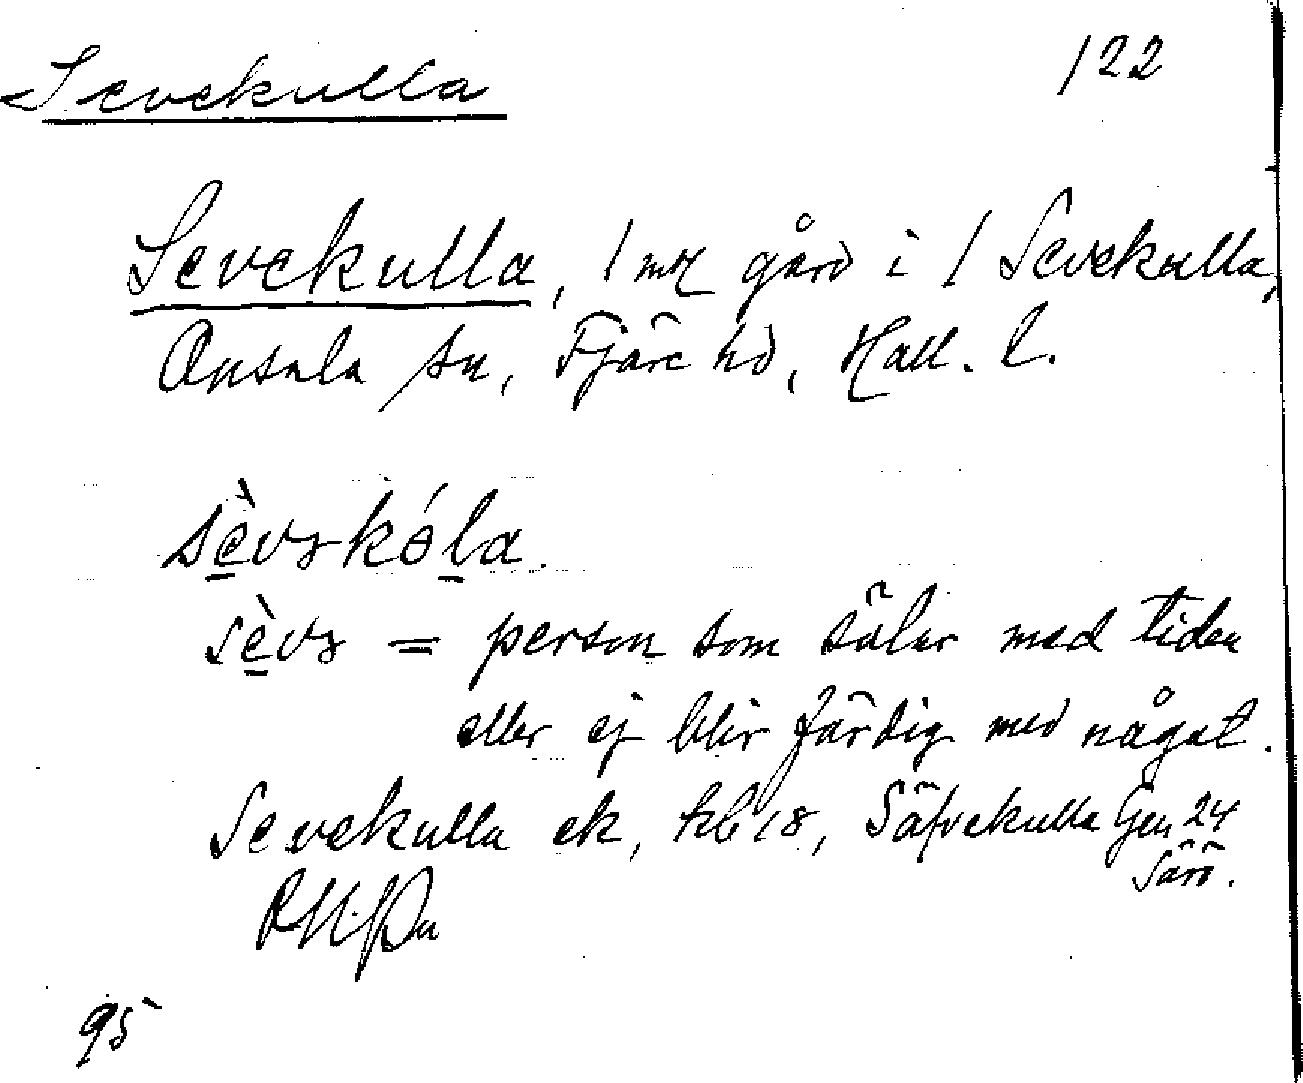 Sevekulla 122
Sevekulla, 1 mtl gård i / Sevekulla,
Onsala sn, Fjäre hd, Hall. l.
sèvəkóla.
sèvə = person som sölar med tiden
eller ej blir färdig med något.
Sevekulla ek, 18, Säfvekulla Gen 24
Särö.
95